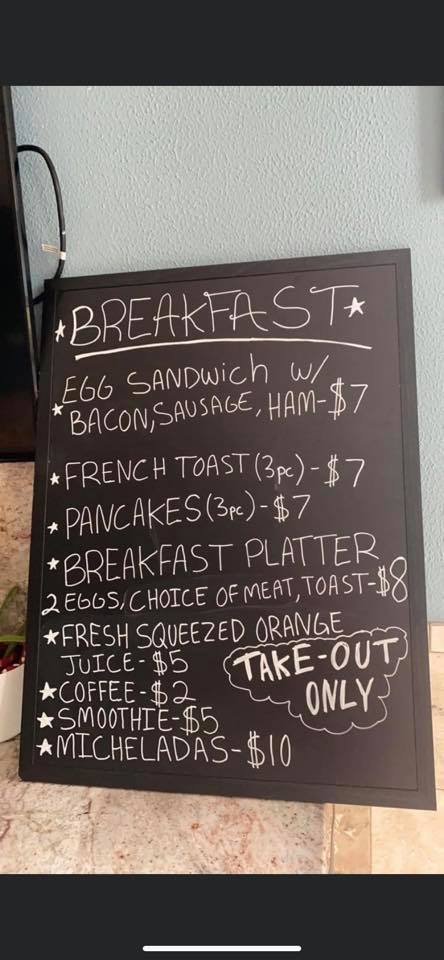 ★BREAKFAST★
★EGG SANDWICH W/
BACON, SAUSAGE, HAM-$7
★FRENCH TOAST (3pc)-$7
★PANCAKES (3pc)-$7
★BREAKFAST PLATTER
2 EGGS, CHOICE OF MEAT, TOAST-$8
★FRESH SQUEEZED ORANGE
JUICE-$5
★COFFEE-$2
★SMOOTHIE-$5
★MICHELADAS-$10
TAKE-OUT
ONLY